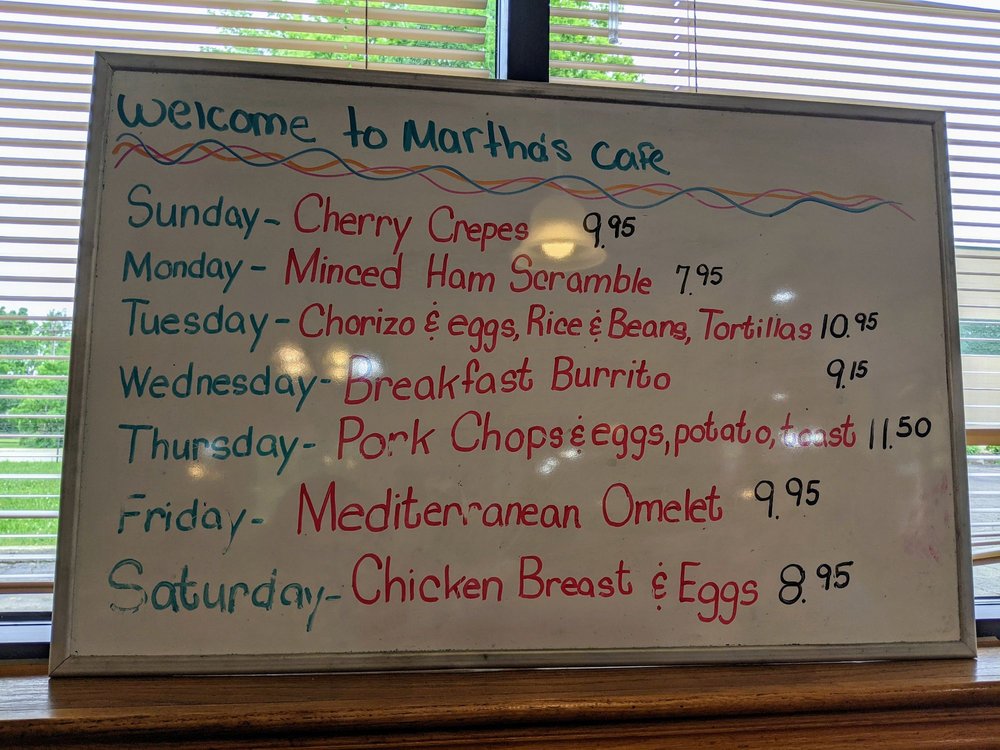 Welcome to Martha's Cafe
Sunday- Cherry Crepes 9.95
Monday- Minced Ham Scramble 7.95
Tuesday- Chorizo & eggs, Rice & Beans, Tortillas 10.95
Wednesday- Breakfast Burrito 9.15
Thursday- Pork Chops & eggs, potato, toast 11.50
Friday- Mediterranean Omelet 9.95
Saturday- Chicken Breast & Eggs 8.95